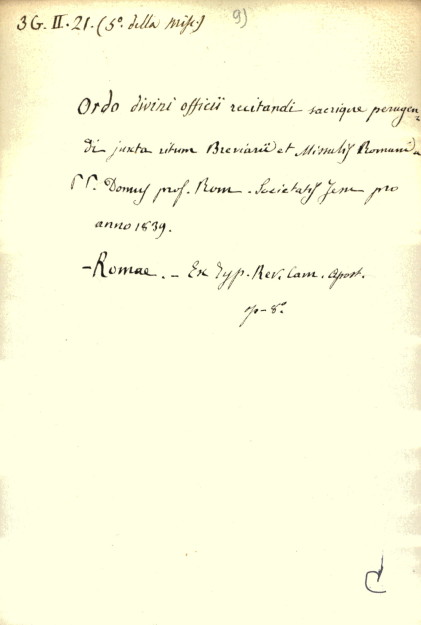 3G. II. 21. (5º. della Misc.) 9)
Ordo divini officii recitandi sacrique peragen-
di juxta ritum Breviarii et Missalis Romani a
PP. Domus prof. Rom. Societatis Jesu pro
anno 1839.
- Romae. - Ex Typ. Rev. Cam. Apost.
8º.